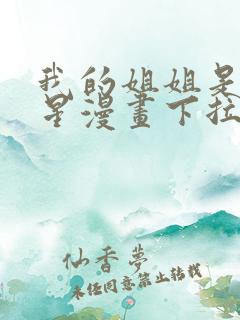 我的姐姐是
星漫畫下拉
仙香夢
未經同意禁止轉載